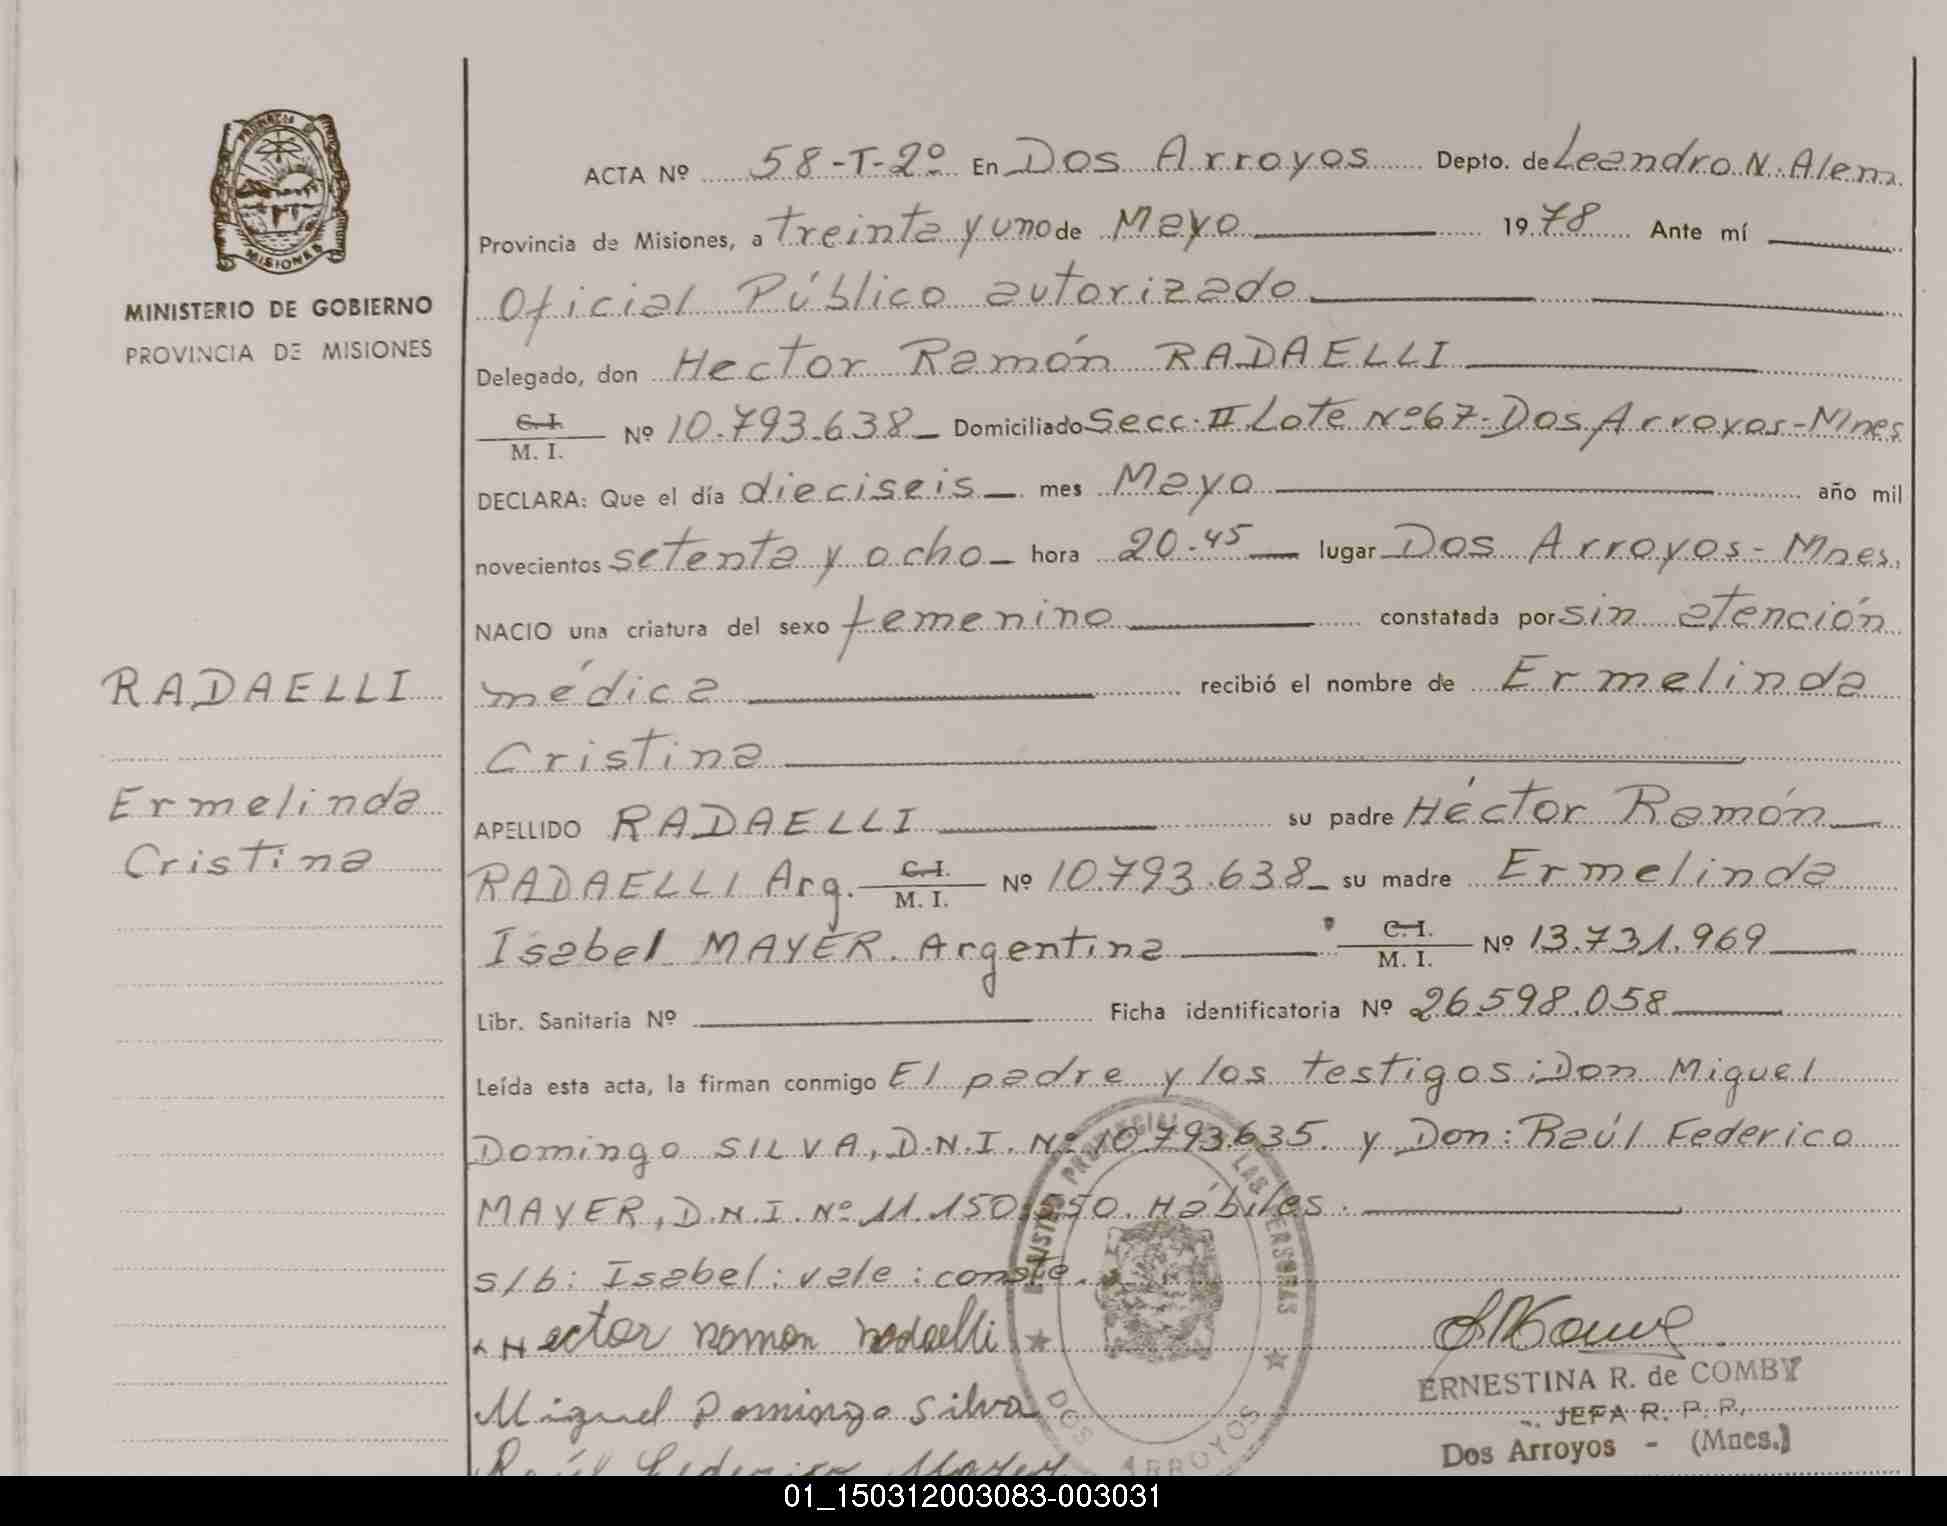 PROVINCIA DE
MISIONES
MINISTERIO DE GOBIERNO
PROVINCIA DE MISIONES
RADAELLI
Ermelinda
Cristina
ACTA Nº 58-T-2º En Dos Arroyos Depto. de Leandro N. Alem
Provincia de Misiones, a treinta y uno de Mayo 1978 Ante mí
Oficial Público autorizado
Delegado, don Hector Ramón RADAELLI
C. I.
M. I. Nº 10.793.638 Domiciliado Secc. II Lote Nº 67-Dos Arroyos-Mnes
DECLARA: Que el día dieciseis mes Mayo año mil
novecientos setenta y ocho hora 20-45 lugar Dos Arroyos-Mnes.
NACIO una criatura del sexo femenino constatada por sin atención
médica recibió el nombre de Ermelinda
Cristina
APELLIDO RADAELLI su padre Héctor Ramón
RADAELLI Arg. C. I. M. I. Nº 10.793.638 su madre Ermelinda
Isabel MAYER. Argentina C. I. M. I. Nº 13.731.969
Libr. Sanitaria Nº Ficha identificatoria Nº 26.598.058
Leída esta acta, la firman conmigo El padre y los testigos: Don Miguel
Domingo SILVA, D.N.I. Nº 10.793.635. y Don: Raúl Federico
MAYER, D.N.I. Nº 11.150.550. Hábiles.
s/b: Isabel: vale: conste.
Hector ramon radaelli
Miguel Domingo Silva
Raúl Federico Mayer
PROVINCIAL LAS PERSONAS
DOS ARROYOS
ERNESTINA R. de COMBY
JEFA R. P. P.
Dos Arroyos - (Mnes.)
01_150312003083-003031